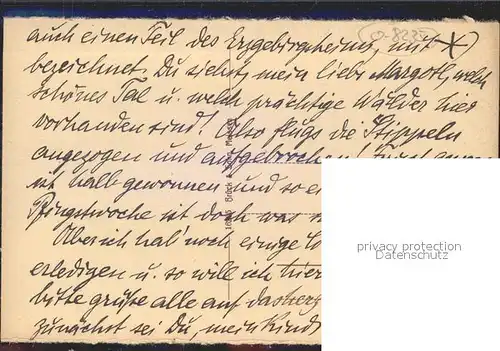 o-8225
auch einen Teil des Erzgebirgheims, mit X
bezeichnet. Du siehst, mein liebe Margotl, welch
schönes Tal u. welch prächtige Wälder hier
vorhanden sind! Also flugs die Stippeln
angezogen und aufgebrochen!
ist halb gewonnen und so
Pfingstwoche ist doch was
Aber ich hab' noch einige
erledigen u. so will ich hier
bitte grüße alle auf das herz
zunächst sei Du, mein Kind
Brück &
privacy protection